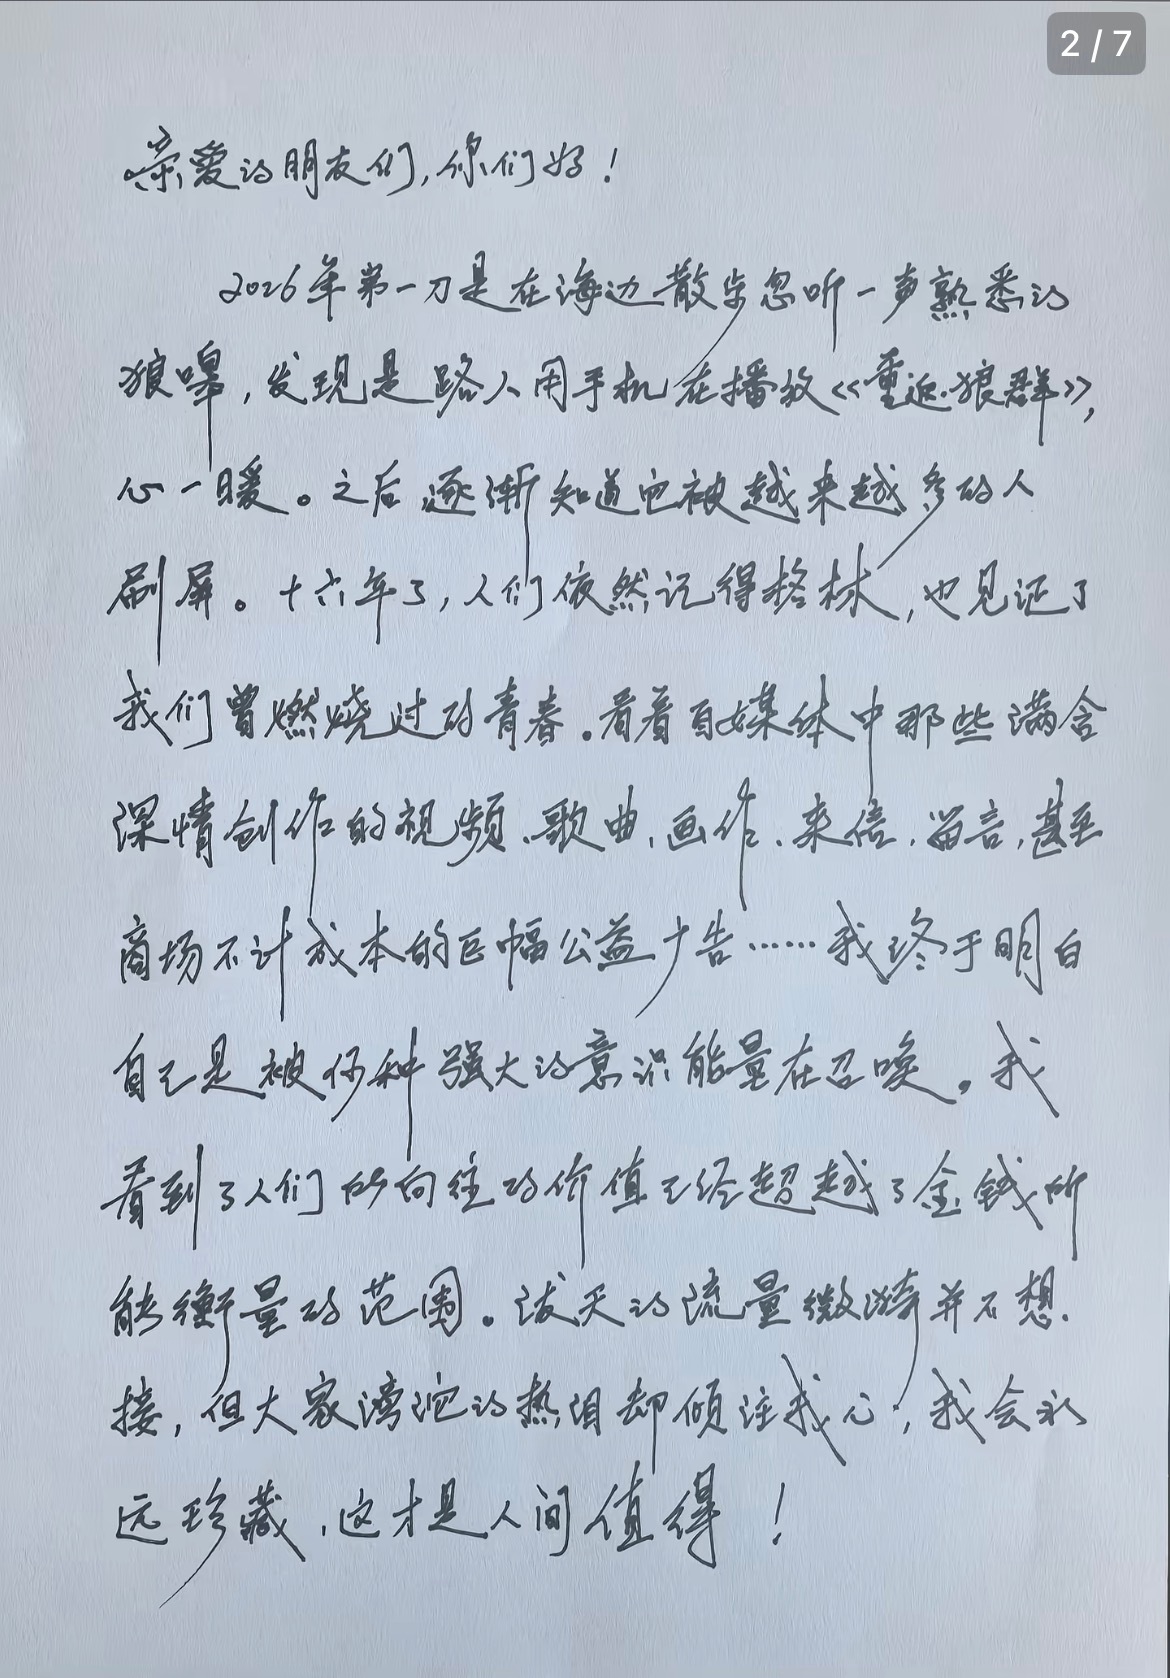 2 / 7
亲爱的朋友们,你们好!
2026年第一刀是在海边散步忽听一声熟悉的
狼嗥,发现是路人用手机在播放《重返·狼群》,
心一暖。之后逐渐知道它被越来越多的人
刷屏。十六年了,人们依然记得格林,也见证了
我们曾燃烧过的青春。看着自媒体中那些满含
深情创作的视频、歌曲、画作、来信、留言,甚至
商场不计成本的巨幅公益广告……我终于明白
自己是被何种强大的意识能量在召唤。我
看到了人们所向往的价值已经超越了金钱所
能衡量的范围。泼天的流量微漪并不想
接,但大家滂沱的热泪却倾注我心,我会永
远珍藏,这才是人间值得!